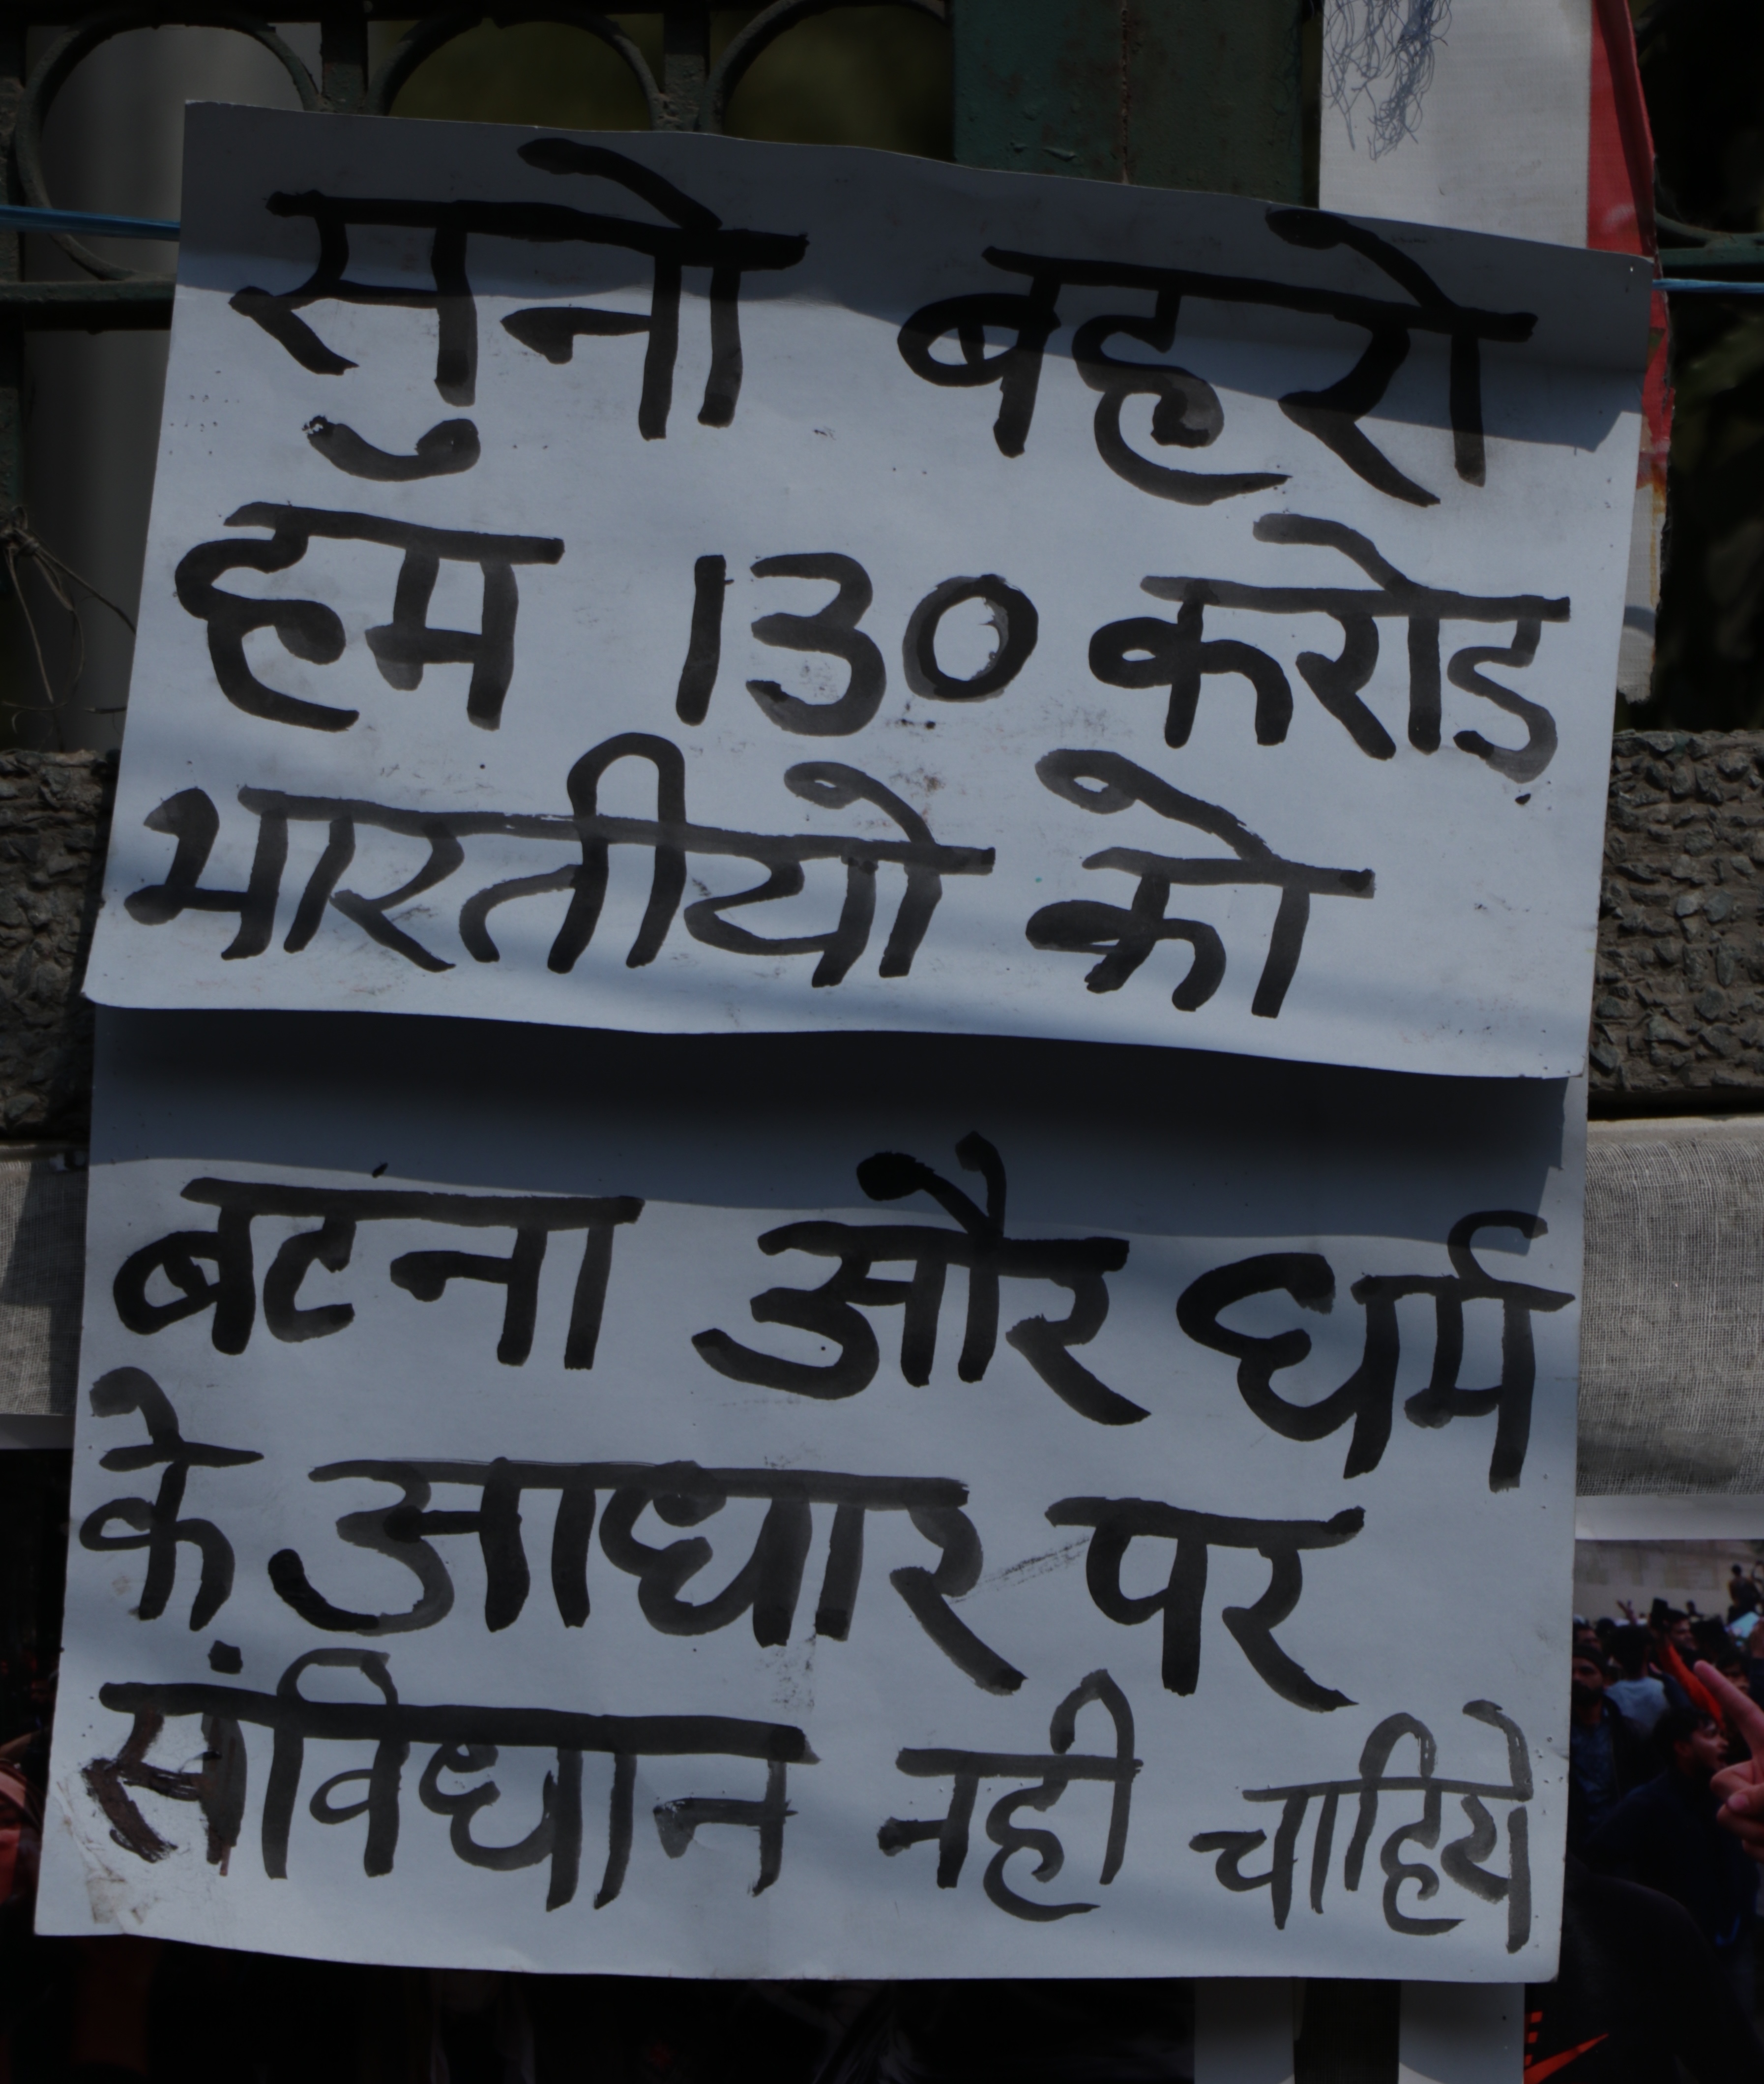 सुनो बहरो
हम 130 करोड
भारतीयो को
बटंना और धर्म
के आधार पर
संविधान नही चाहिये